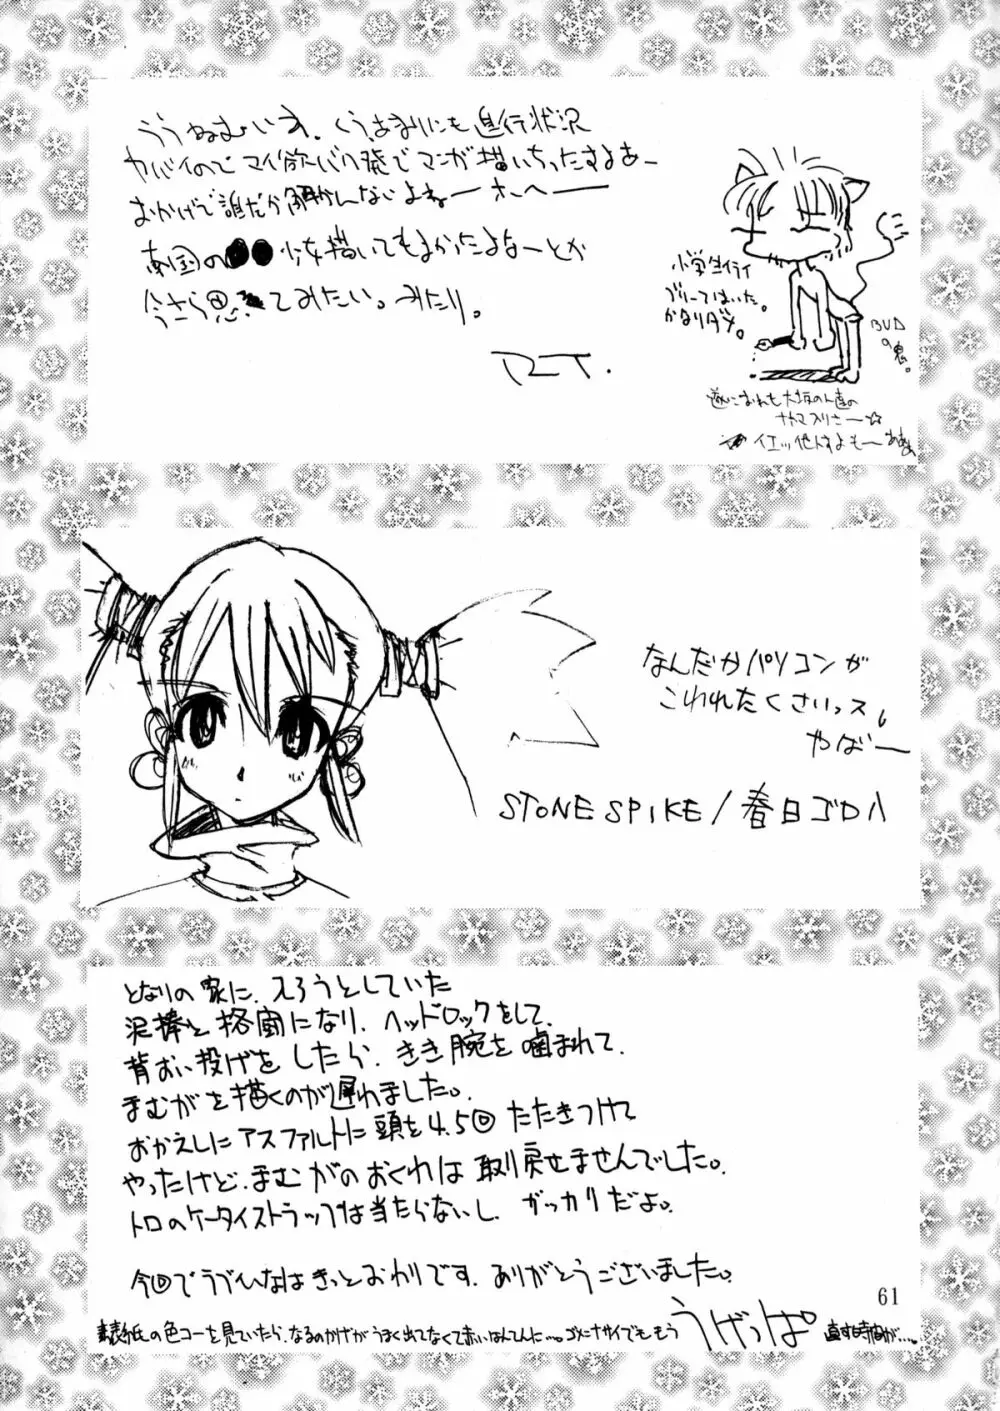 ううねむいす、くうあまりにも進行状況
ヤバイので マイ欲バク発で マンガ描いちったすよあー
おかげで誰だか解かんないよねーホヘー
南国の●●少女描いてもよかったよなーとか
今さら思ってみたい。みたり。
小学生イライ
かなりダメ。
遂におれも大坂の人達の
ナカマ入りさー☆
なんだかパソコンが
こわれたくさいっス、
やばー
STONE SPIKE / 春日ゴロハ
となりの家に、入ろうとしていた
泥棒と格闘になり、ヘッドロックをして、
背おい投げをしたら、きき腕を噛まれて、
まむがを描くのが遅れました。
おかえしにアスファルトに頭を4.5回たたきつけて
やったけど、まむがのおくれは取り戻せませんでした。
トロのケータイストラップは当たらないし、ガッカリだよ。
今回でラブひなはきっとおわりです。ありがとうございました。
うげっぱ
61
表紙の色コーを見ていたら、なるのかげがうまく出てなくて赤いはんてんに…。ゴメンナサイでももう直す時間が…。